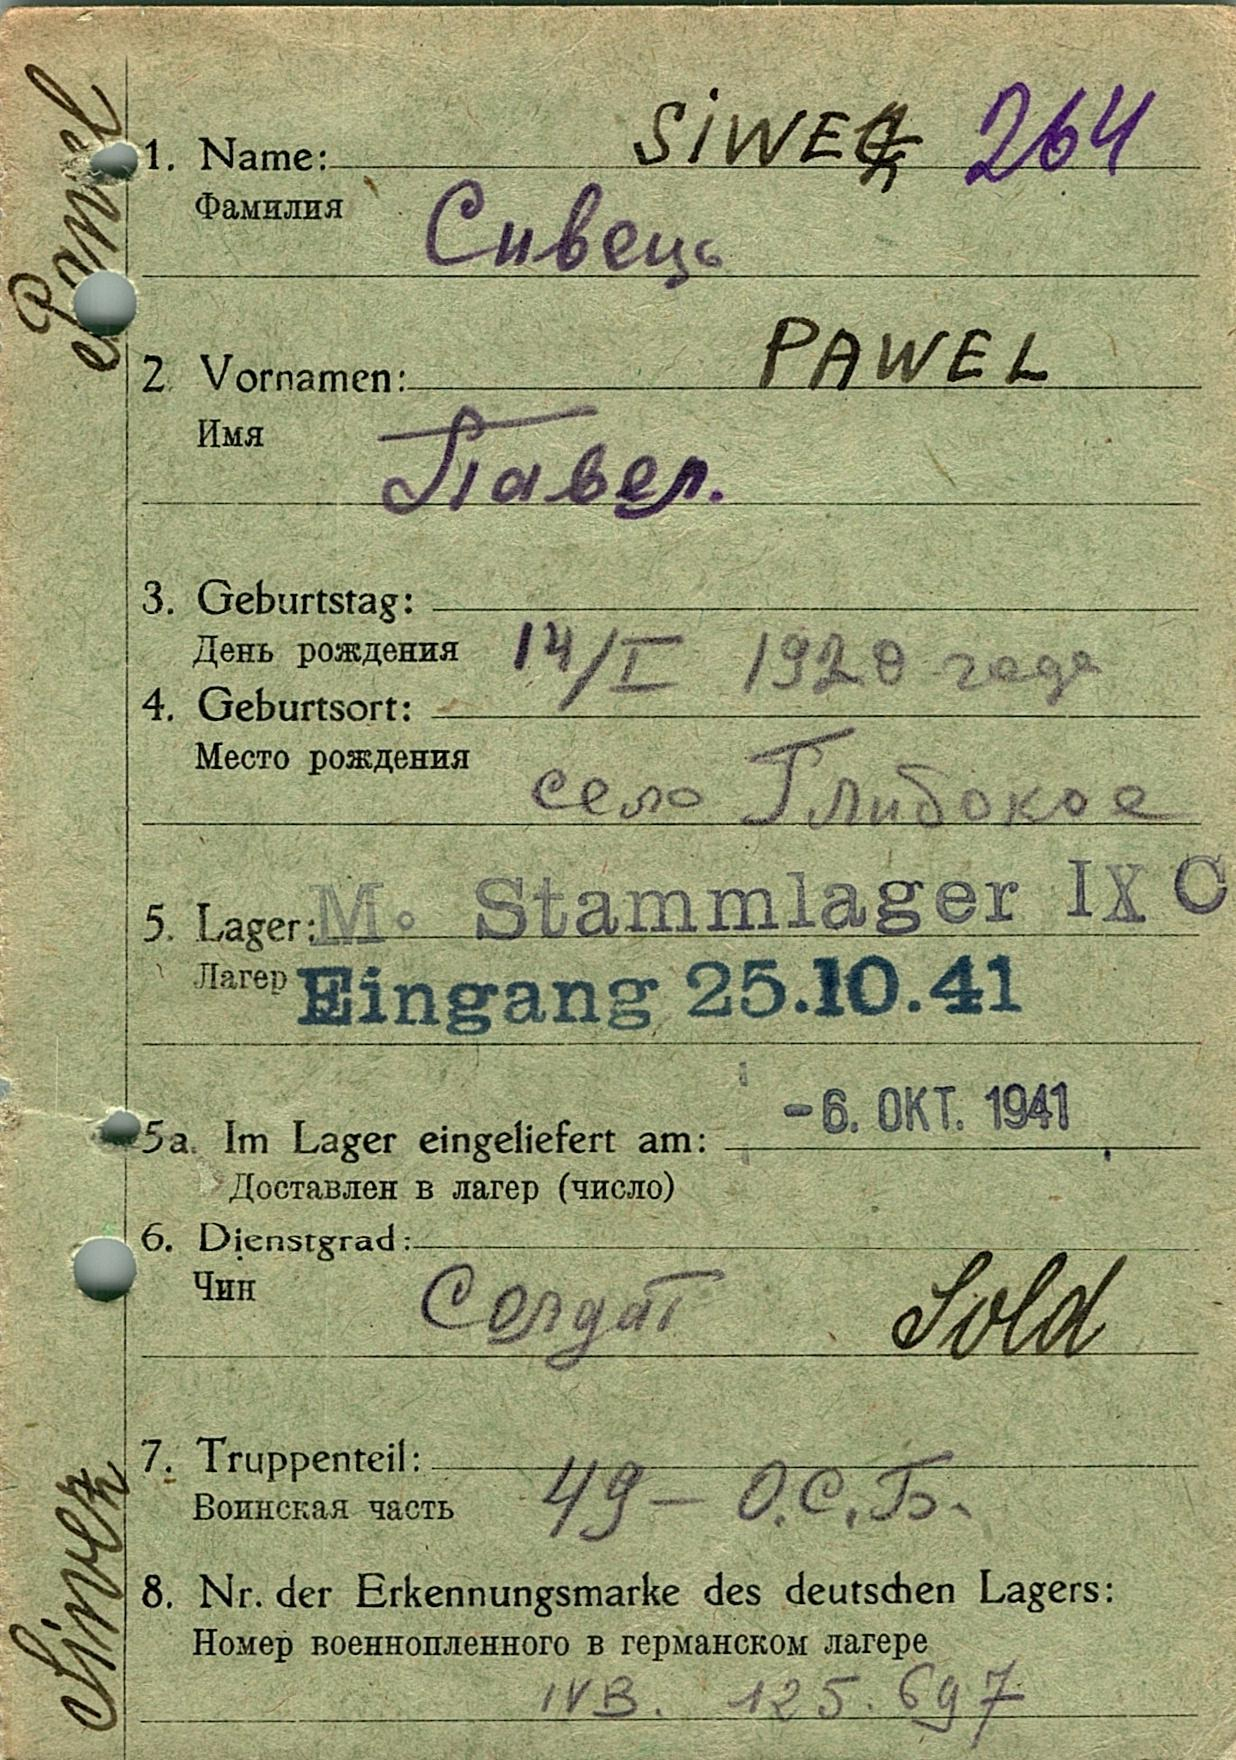 Pawel
1. Name: SiWEC 264
Фамилия
Сивець
2. Vornamen: PAWEL
Имя
Павел.
3. Geburtstag:
День рождения 14/I 1920 года
4. Geburtsort:
Место рождения
село Глибокое
5. Lager: M. Stammlager IX C
Лагер Eingang 25.10.41
5a. Im Lager eingeliefert am: -6. OKT. 1941
Доставлен в лагер (число)
6. Dienstgrad:
Чин Солдат Sold
7. Truppenteil:
Воинская часть 49 - О.С.Б.
8. Nr. der Erkennungsmarke des deutschen Lagers:
Номер военнопленного в германском лагере
IVB. 125.697